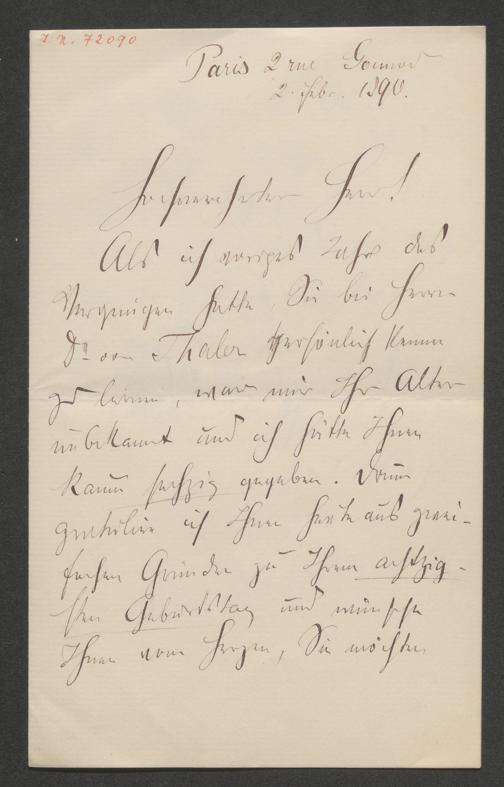 J.N. 72090
Paris 2 rue Gounod
2. Febr. 1890.
Hochverehrter Herr!
Als ich voriges Jahr das
Vergnügen hatte, Sie bei Herrn
Dr von Thaler persönlich kennen
zu lernen, war mir Ihr Alter
unbekannt und ich hätte Ihnen
kaum sechzig gegeben. Drum
gratulire ich Ihnen heute aus zwei-
fachen Gründen zu Ihrem achtzig-
sten Geburtstag und wünsche
Ihnen vom Herzen, Sie möchten